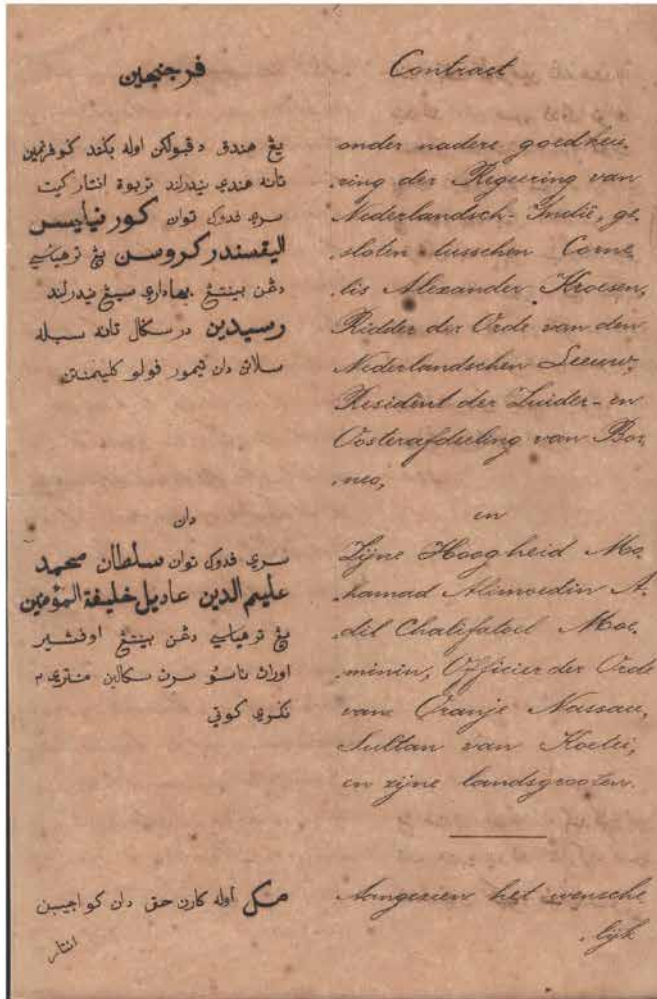 فرجنجين
يڠ هندق دقبولكن اوله بڬند ڬوفرنمين
تانه هندي نيدرلند تربوة انتار كيت
سري فدوك توان كورنيليس
اليقسندر كروسن يڠ ترهياسي
دڠن بينتڠ بهادري سيڠ نيدرلند
رسيدين درسكل تانه سبله
سلاتن دان تيمور فولو كليمنتن
دان
سري فدوك توان سلطان محمد
عليم الدين عاديل خليفة المؤمنين
يڠ ترهياسي دڠن بينتڠ اوفشير
اورڽ ناسو سرت سكالين منتري٢
نڬري كوتي
مك اوله كارن حق دان كواجيبن
انتار
Contract
onder nadere goedkeu-
ring der Regeering van
Nederlandsch-Indië, ge-
sloten tusschen Corne-
lis Alexander Kroesen,
Ridder der Orde van den
Nederlandschen Leeuw,
Resident der Zuider- en
Oosterafdeeling van Bor-
neo,
en
Zijne Hoogheid Mo-
hamad Alimoedin A-
dil Chalifatoel Moe-
minin, Officier der Orde
van Oranje Nassau,
Sultan van Koetei,
en zijne landsgrooten.
Aangezien het wensche
lijk